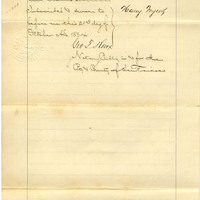 Subscribed & sworn to
before me this 21st day of
October A.D. 1896
Henry Myers
Geo. T. Knox
Notary Public in & for the
City & County of San Francisco